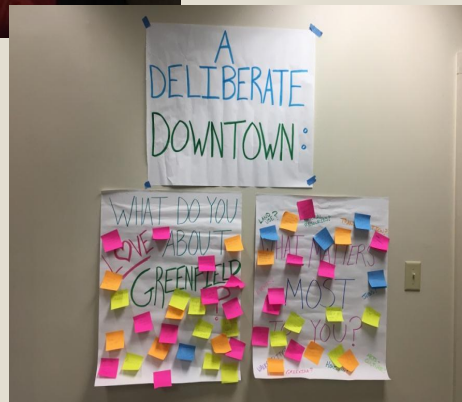 A
DELIBERATE
DOWNTOWN:
WHAT DO YOU
LOVE ABOUT
GREENFIELD
?
WHAT MATTERS
MOST
YOU?